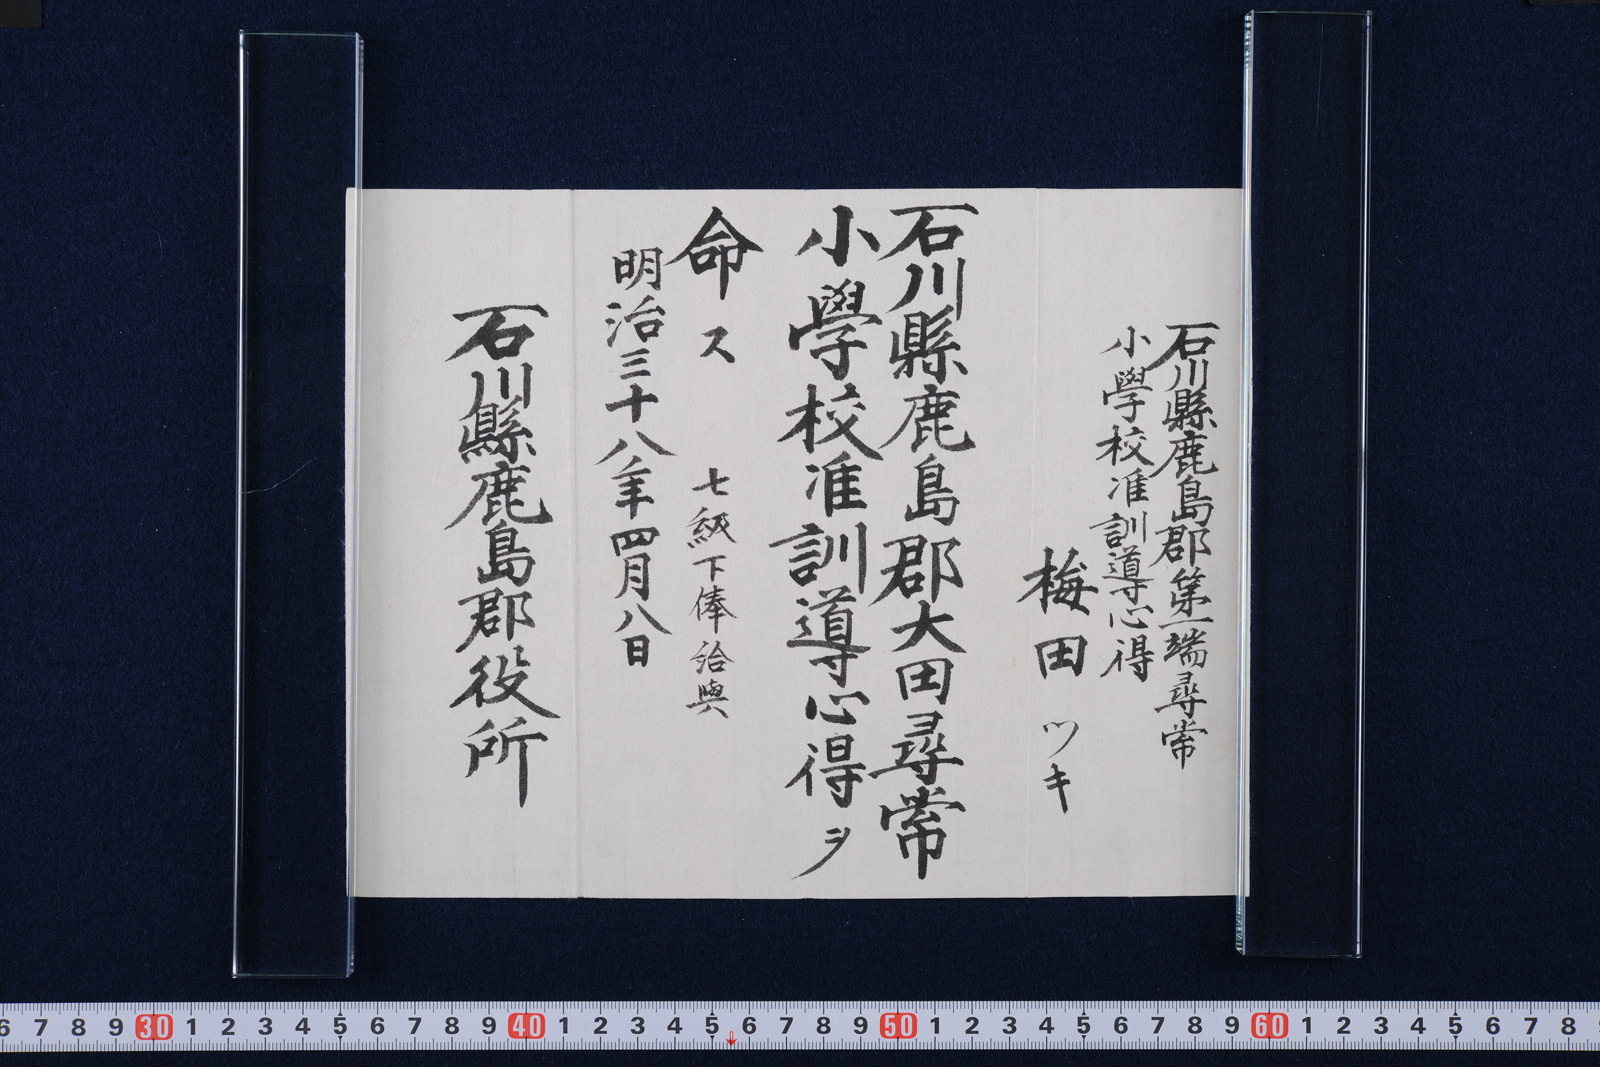 石川縣鹿島郡第一端尋常
小學校准訓導心得
梅田ツキ
石川縣鹿島郡大田尋常
小學校准訓導心得ヲ
命ス
七級下俸給與
明治三十八年四月八日
石川縣鹿島郡役所
6 7 8 9 30 1 2 3 4 5 6 7 8 9 40 1 2 3 4 5 6 7 8 9 50 1 2 3 4 5 6 7 8 9 60 1 2 3 4 5 6 7 8